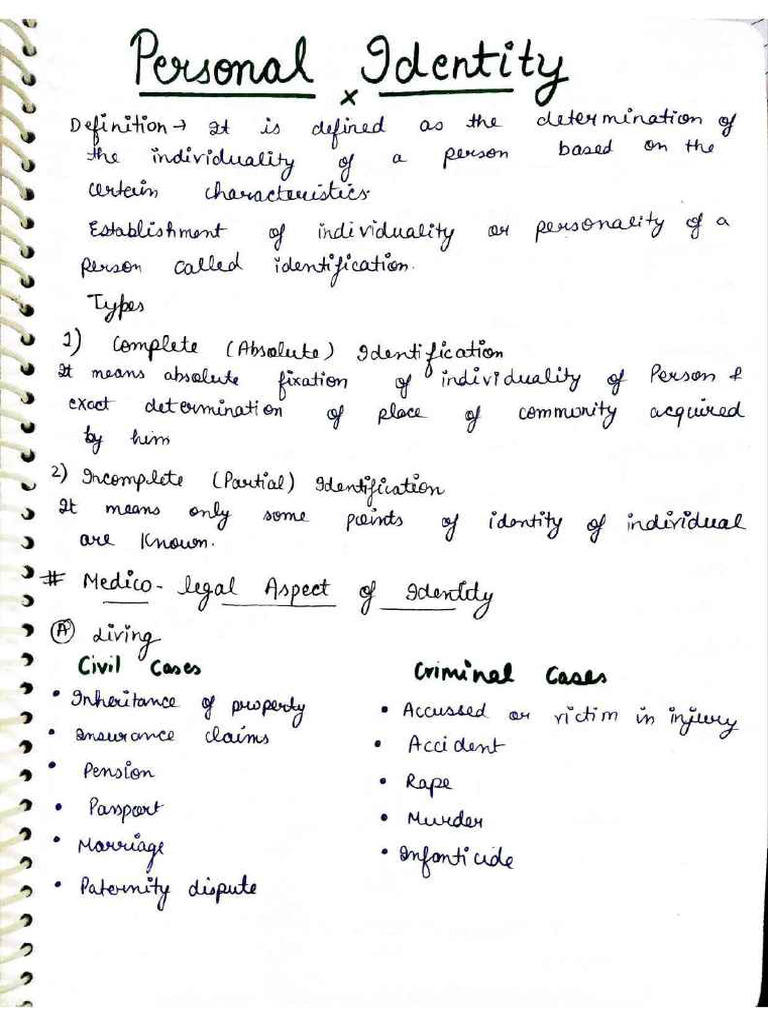 Personal Identity
x
Definition → It is defined as the determination of
the individuality of a person based on the
certain characteristics.
Establishment of individuality or personality of a
person called identification.
Types
1) Complete (Absolute) Identification
It means absolute fixation of individuality of Person &
exact determination of place of community acquired
by him
2) Incomplete (Partial) Identification
It means only some points of identity of individual
are known.
# Medico-legal Aspect of Identity
(A) Living
Civil Cases
• Inheritance of property
• Insurance claims
• Pension
• Passport
• Marriage
• Paternity dispute
Criminal Cases
• Accussed or victim in injury
• Accident
• Rape
• Murder
• Infanticide